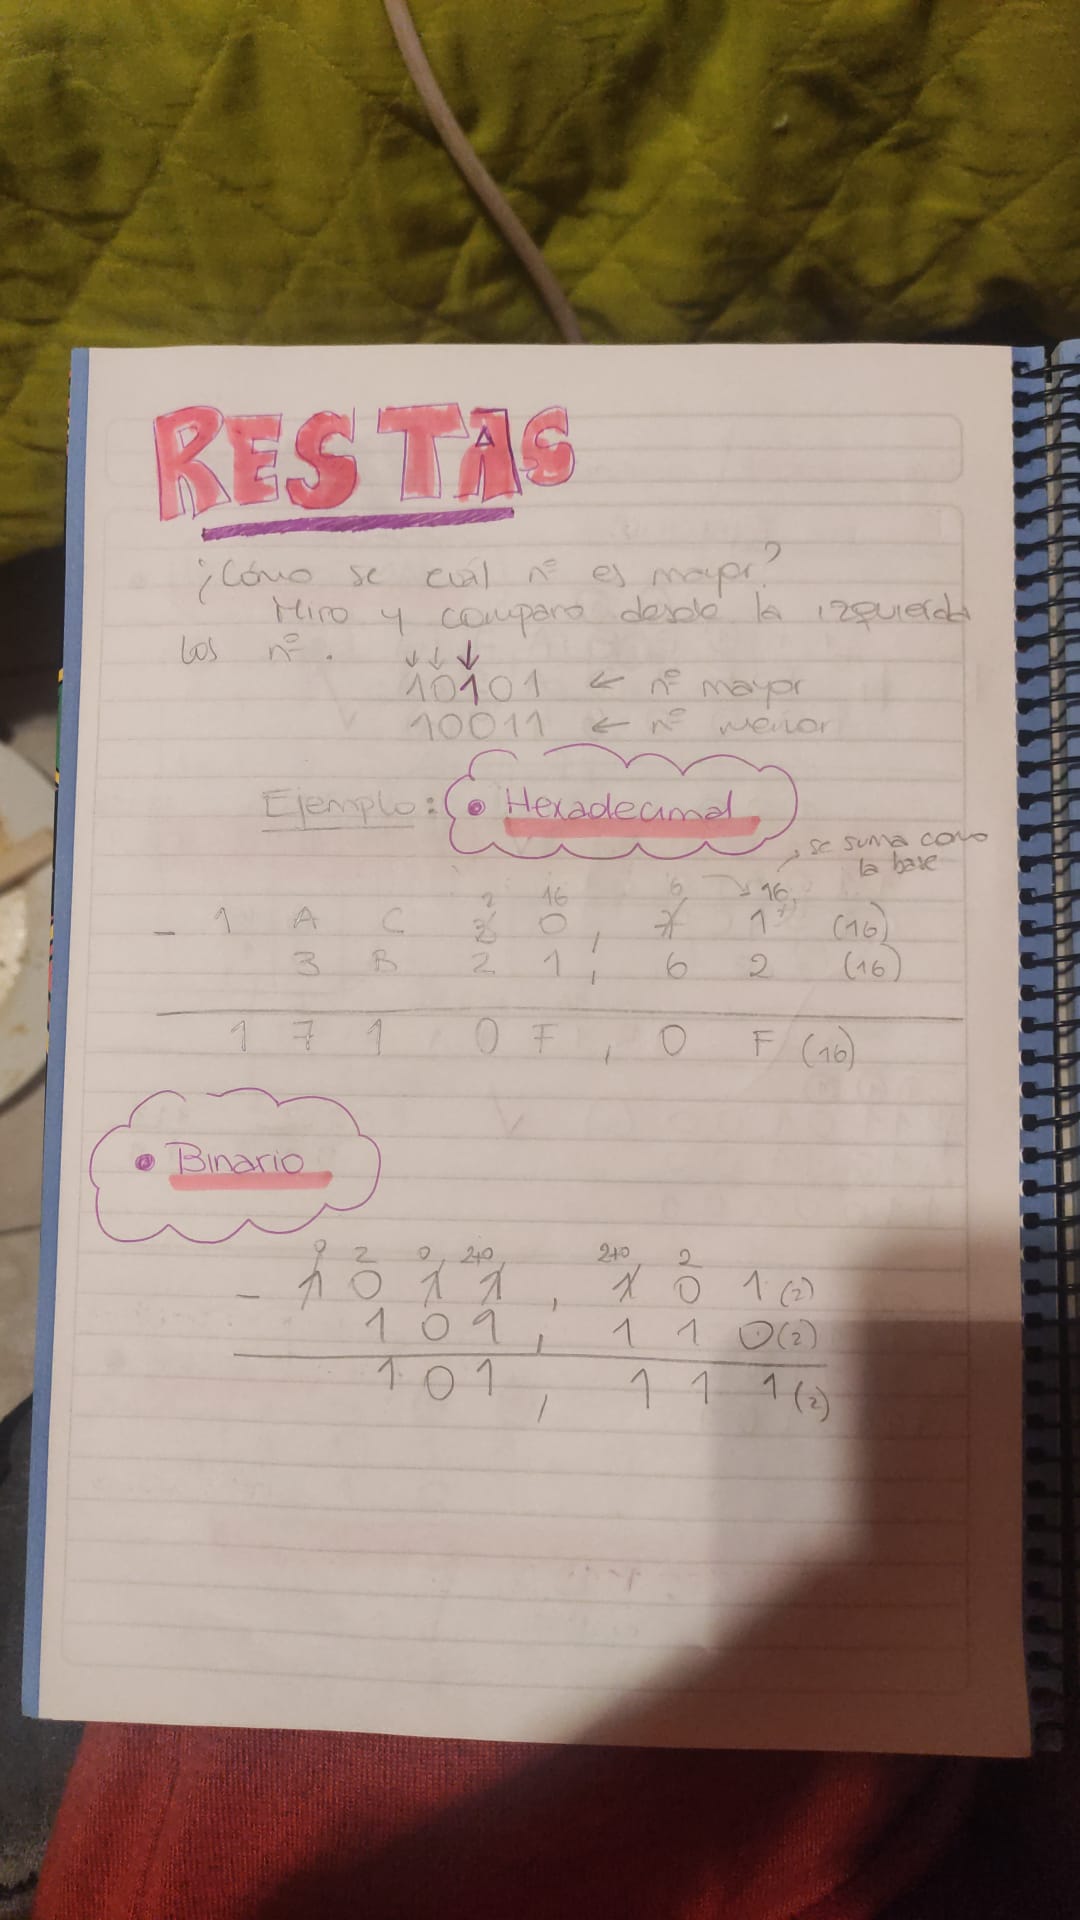 RESTAS
¿Cómo se cuál nº es mayor?
Miro y comparo desde la izquierda
los nº.
10101 ← nº mayor
10011 ← nº menor
Ejemplo: • Hexadecimal
se suma como
la base
2 16 6 16
- 1 A C 3 0 , 7 1 (16)
3 B 2 1 , 6 2 (16)
1 7 1 0 F , 0 F (16)
• Binario
0 2 0 2+0 2+0 2
- 1 0 1 1 , 1 0 1 (2)
1 0 1 , 1 1 0 (2)
1 0 1 , 1 1 1 (2)